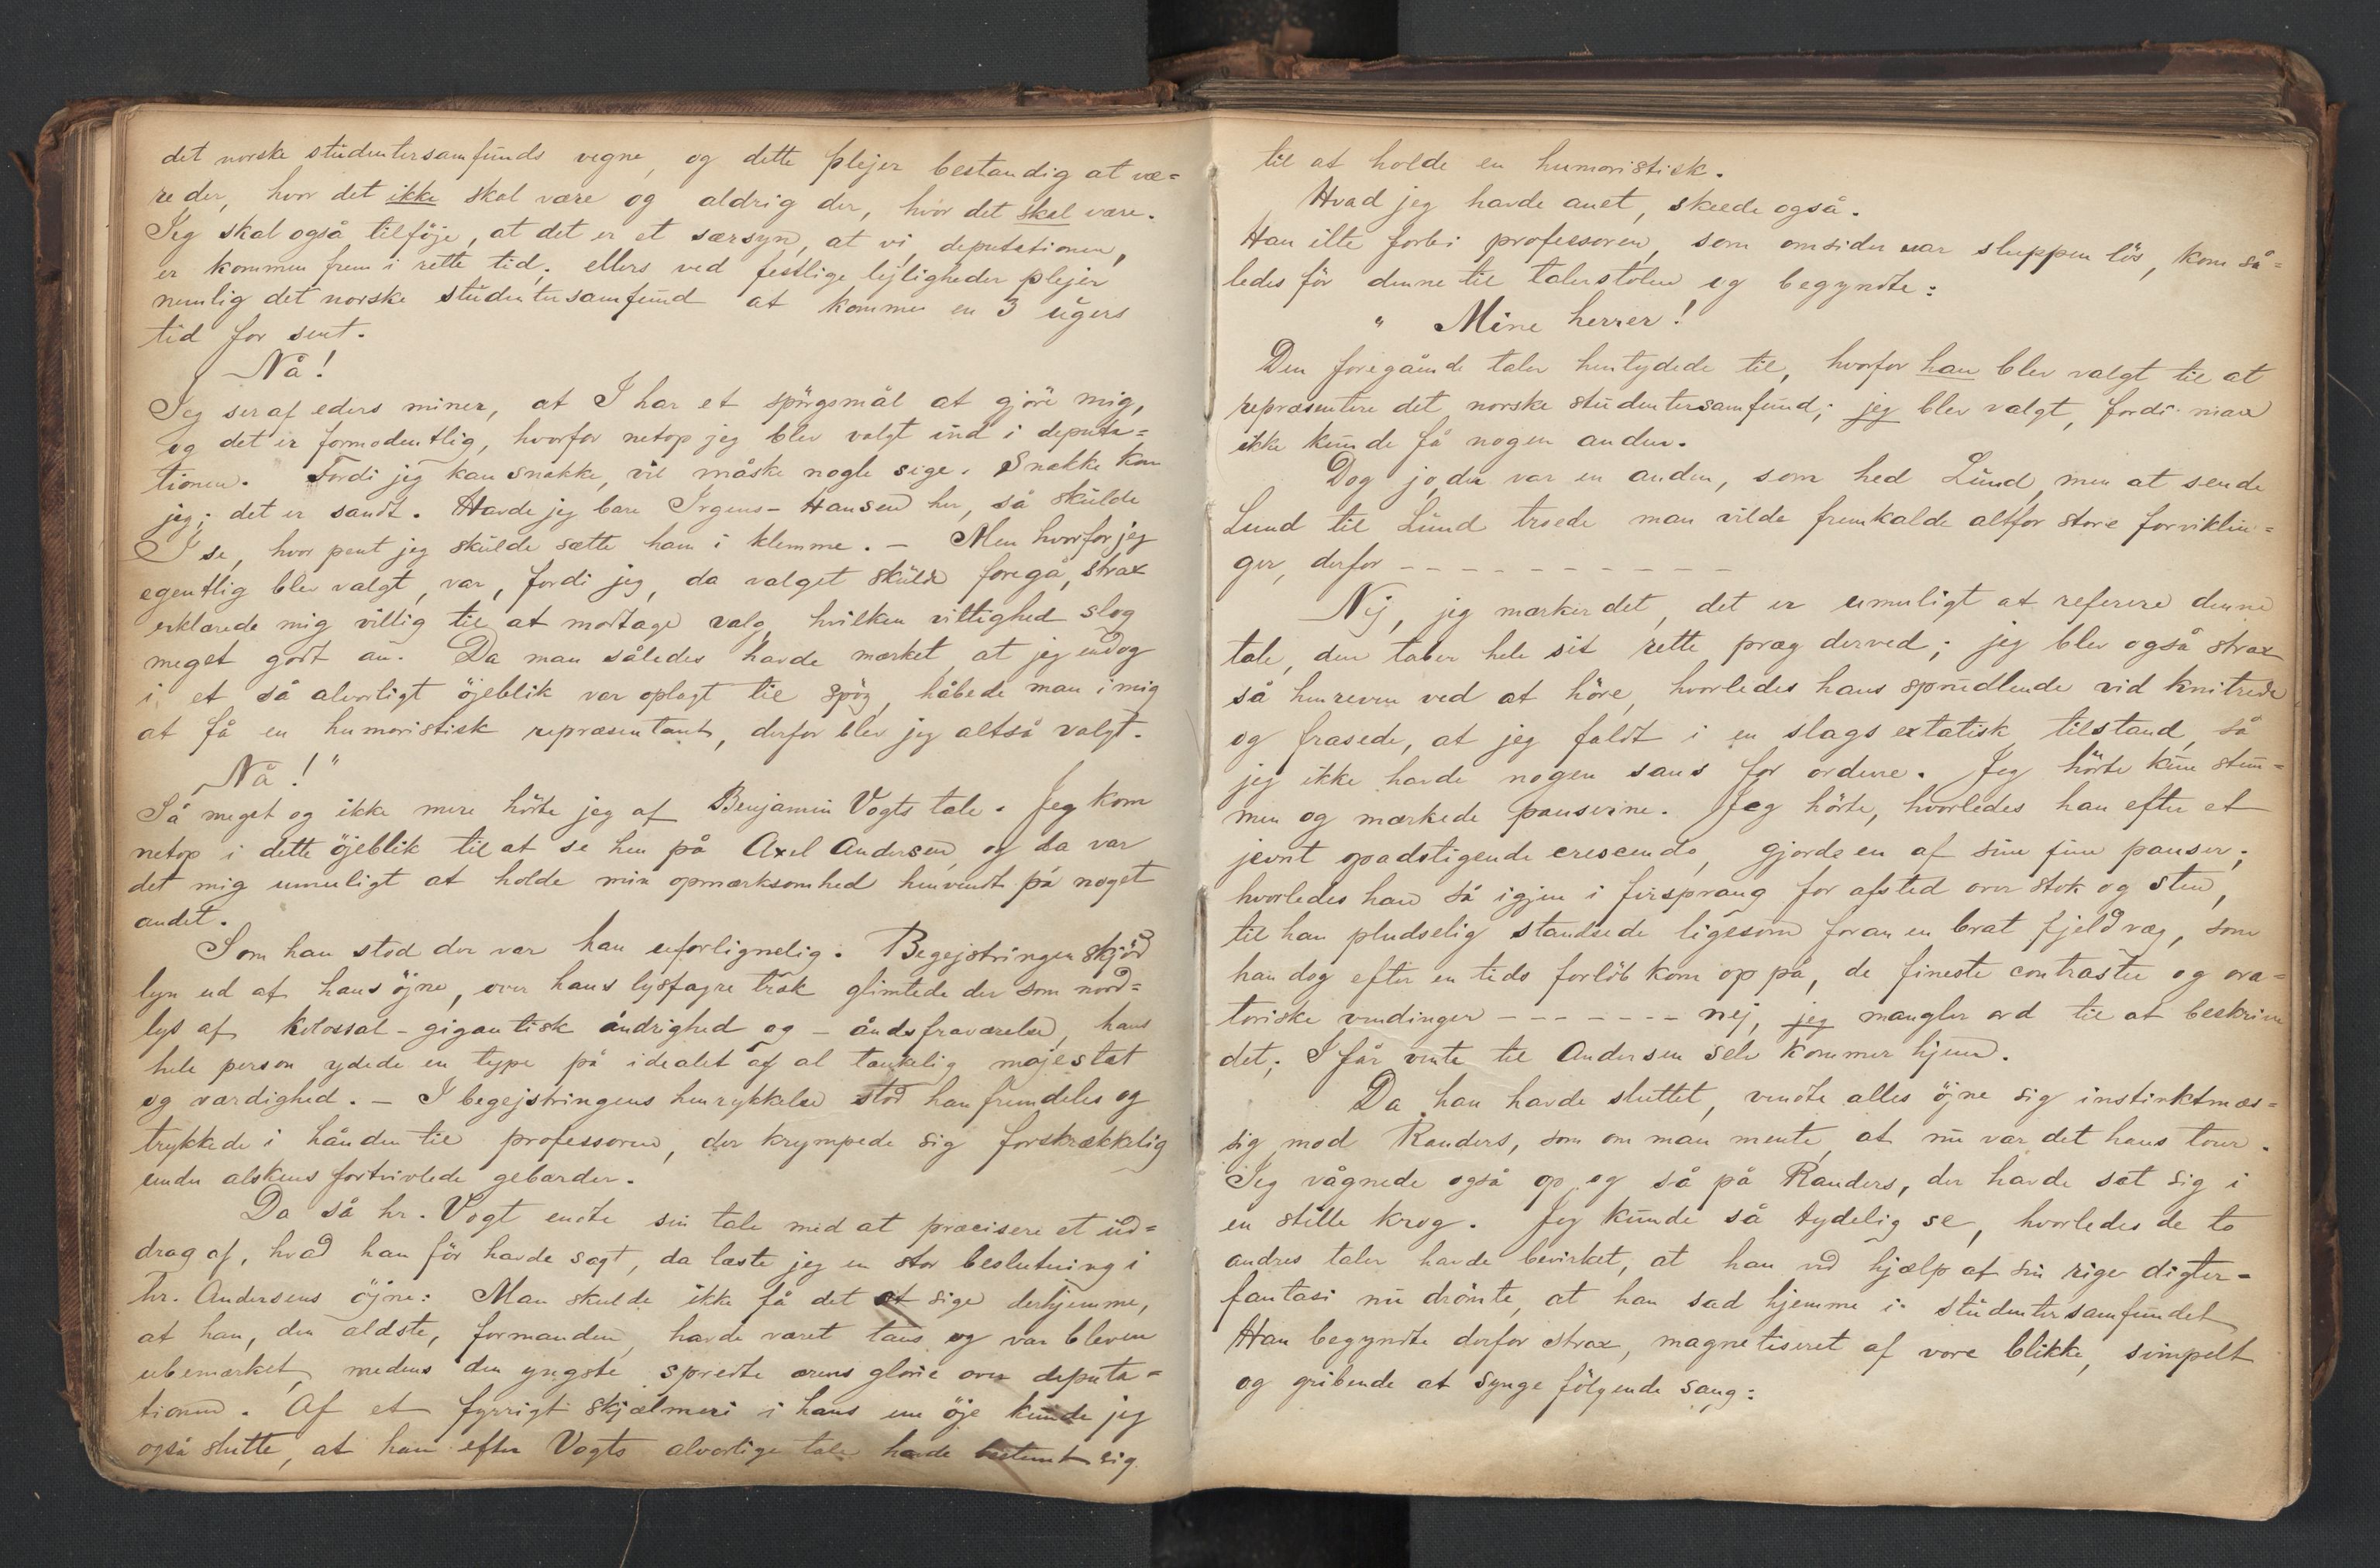 det norske studentersamfunds vegne, og dette plejer bestandig at væ=
re der, hvor det ikke skal være og aldrig der, hvor det skal være.
Jeg skal også tilföje, at det er et særsyn, at vi, deputationen,
er kommen frem i rette tid; ellers ved festlige lejligheder plejer
nemlig det norske studentersamfund at komme en 3 ugers
tid for sent.
Nå!
Jeg ser af eders miner, at I har et spörgsmål at gjöre mig,
og det er formodentlig, hvorfor netop jeg blev valgt ind i deputa=
tionen. Fordi jeg kan snakke, vil måske nogle sige. Snakke kan
jeg; det er sandt. Havde jeg bare Irgens-Hansen her, så skulde
I se, hvor pent jeg skulde sætte ham i klemme. – Men hvorfor jeg
egentlig blev valgt, var, fordi jeg, da valget skulde foregå, strax
erklærede mig villig til at modtage valg, hvilken vittighed slog
meget godt an. Da man således havde mærket, at jeg endog
i et så alvorligt öjeblik var oplagt til spög, håbede man i mig
at få en humoristisk repræsentant, derfor blev jeg altså valgt.
Nå!"
Så meget og ikke mere hörte jeg af Benjamin Vogts tale. Jeg kom
netop i dette öjeblik til at se hen på Axel Andersen, og da var
det mig umuligt at holde min opmærksomhed henvendt på noget
andet.
Som han stod der var han uforlignelig. Begejstringen skjöd
lyn ud af hans öjne, over hans lysfagre træk glimtede der som nord=
lys af kolossal-gigantisk åndrighed og – åndsfraværelse, hans
hele person ydede en type på idealet af al tænkelig majestæt
og værdighed. – I begejstringens henrykkelse stod han fremdeles og
trykkede i hånden til professoren, der krympede sig forskrækkelig
under alskens fortvivlede gebærder.
Da så hr. Vogt endte sin tale med at præcisere et ud=
drag af, hvad han för havde sagt, da læste jeg en stor beslutning i
hr. Andersens öjne: Man skulde ikke få det at sige derhjemme,
at han, den ældste, formanden, havde været taus og var bleven
ubemærket, medens den yngste spredte ærens glorie over deputa=
tionen. Af et fyrrigt skjælmeri i hans ene öje kunde jeg
også slutte, at han efter Vogts alvorlige tale havde bestemt sig
til at holde en humoristisk.
Hvad jeg havde anet, skede også.
Han ilte forbi professoren, som omsider var sluppen lös, kom så=
ledes för denne til talerstolen og begyndte:
" Mine herrer!
Den foregående taler hentydede til, hvorfor han blev valgt til at
repræsentere det norske studentersamfund; jeg blev valgt, fordi man
ikke kunde få nogen anden.
Dog jo, der var en anden, som hed Lund, men at sende
Lund til Lund troede man vilde fremkalde altfor store forviklin=
ger, derfor – – – – – – – – – – –
Nej, jeg mærker det, det er umuligt at referere denne
tale, den taber hele sit rette præg derved; jeg blev også strax
så henreven ved at höre, hvorledes hans sprudlende vid knitrede
og frasede, at jeg faldt i en slags extatisk tilstand, så
jeg ikke havde nogen sans for ordene. Jeg hörte kun stem=
men og mærkede pauserne. Jeg hörte, hvorledes han efter et
jevnt opadstigende crescendo, gjorde en af sine fine pauser;
hvorledes han så igjen i firsprang for afsted over stok og sten,
til han pludselig standsede ligesom foran en brat fjeldvæg, som
han dog efter en tids forlöb kom op på, de fineste contraster og ora=
toriske vendinger – – – – – – – nej, jeg mangler ord til at beskrive
det; I får vente til Andersen selv kommer hjem.
Da han havde sluttet, vendte alles öjne sig instinktmæs=
sig mod Randers, som om man mente, at nu var det hans tour.
Jeg vågnede også op og så på Randers, der havde sat sig i
en stille krog. Jeg kunde så tydelig se, hvorledes de to
andres taler havde bevirket, at han ved hjælp af sin rige digter=
fantasi nu drömte, at han sad hjemme i studentersamfundet
Han begyndte derfor strax, magnetiseret af vore blikke, simpelt
og gribende at synge fölgende sang: